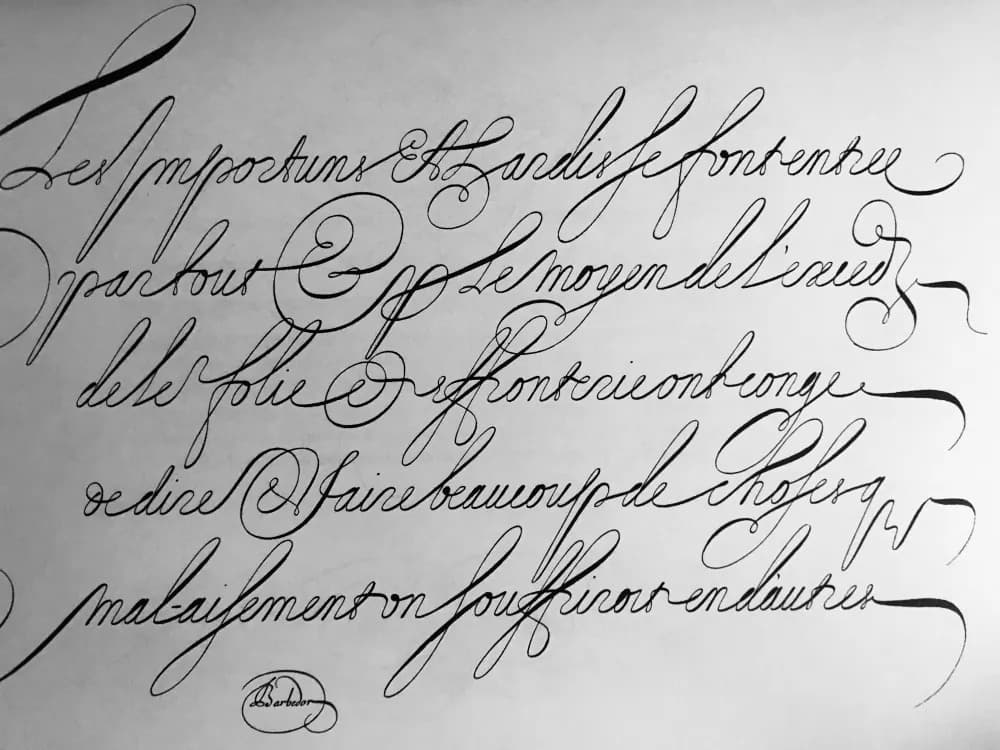 Les Importuns Et Hardis se font entree
par tout & Le moyen de l'exced
de ler folie & effronterie ont conge
de dire & faire beaucoup de choses
mal-aisement on souffriroit en d'autres
Barbedor